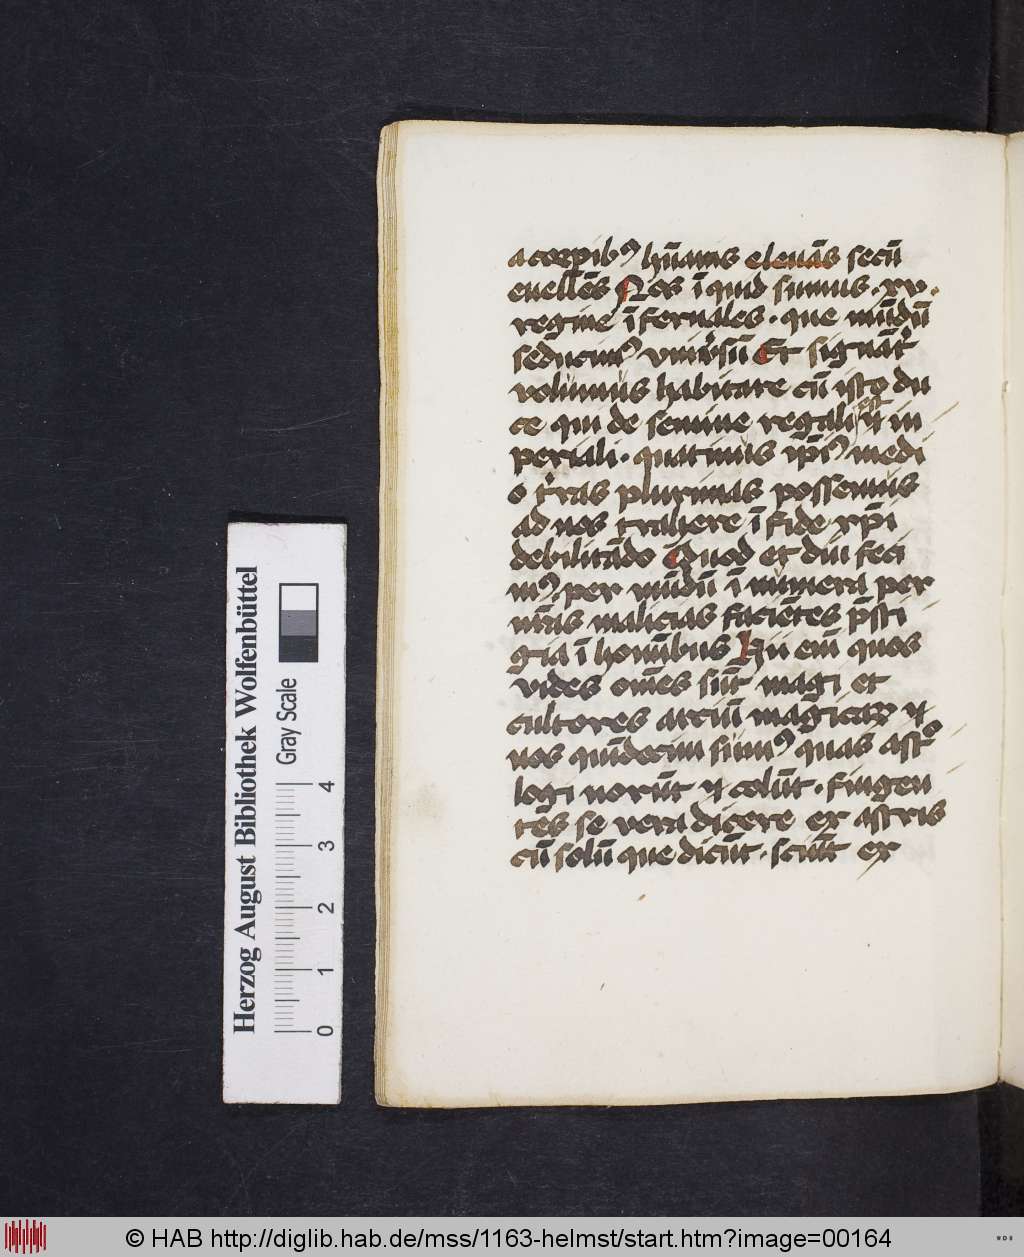 a corꝑibꝰ hūanis eleuās secū
euellēs Nos īquid sumus · xv ·
regine īfernales · que mūdū
seducimꝰ vniv̓sū Et signāt̓
volumus habitare cū isto du
ce qui de semine regali est ⁊ in
periali · quatinus ip̄i medi
o t̓ras plurimas possemus
ad nos trahere ī fide xp̄i
debilitādo Quod et diu feci
mꝰ per mūdū ī numera per
nr̄as malicias faciētes p̄sti
gia ī homībus Hii em̄ quos
vides om̄es sūt magi et
cultores arciū magicaꝝ ⁊
nos quīdecim sumꝰ quas ast̊
logi norūt ⁊ colūt · fingen
tes se vera dicere ex astris
cū solū que dicūt · sciūt ex
Herzog August Bibliothek Wolfenbüttel
Gray Scale
0 1 2 3 4
© HAB http://diglib.hab.de/mss/1163-helmst/start.htm?image=00164